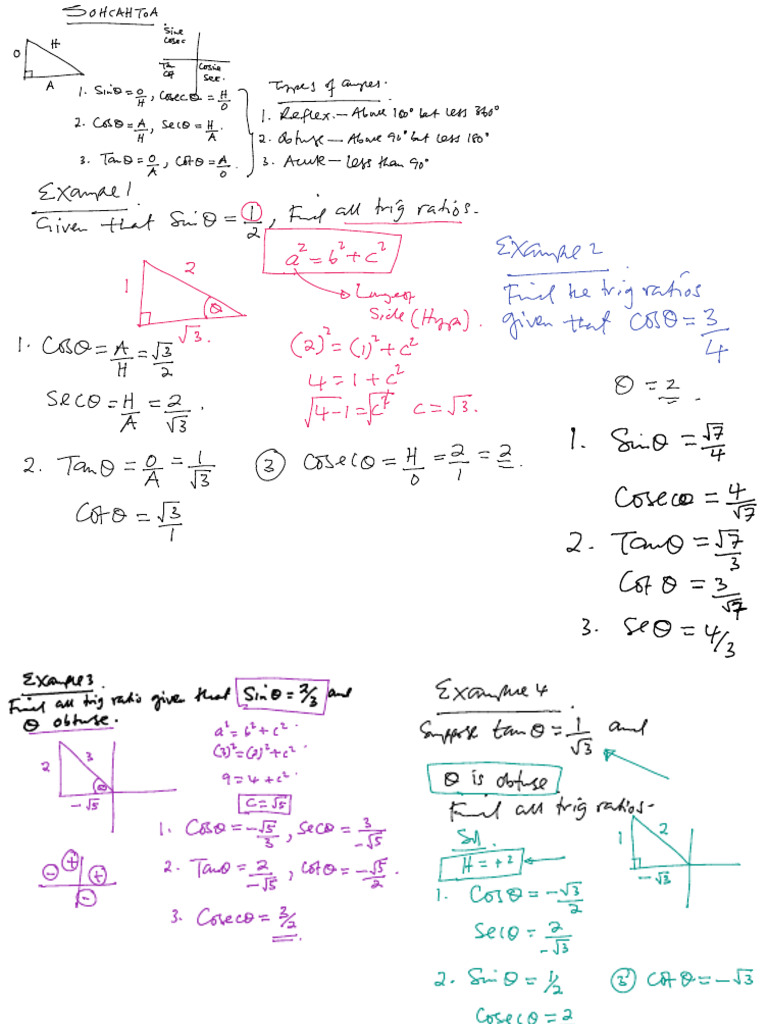 SOHCAHTOA
Sine
Cosec
Tan
Cot
Cosine
Sec
O
H
A
1. Sinθ = O/H, Cosecθ = H/O
2. Cosθ = A/H, Secθ = H/A
3. Tanθ = O/A, Cotθ = A/O
Types of angles.
1. Reflex – Above 180° but less 360°
2. Obtuse – Above 90° but less 180°
3. Acute – Less than 90°
Example 1
Given that Sinθ = 1/2, Find all trig ratios.
1
2
θ
√3.
a² = b² + c²
Largest
Side (Hyp).
(2)² = (1)² + c²
4 = 1 + c²
√4-1 = √c² c = √3.
1. Cosθ = A/H = √3/2
Secθ = H/A = 2/√3.
2. Tanθ = O/A = 1/√3
Cotθ = √3/1
③ Cosecθ = H/O = 2/1 = 2.
Example 2
Find the trig ratios
given that Cosθ = 3/4
θ = 2.
1. Sinθ = √7/4
Cosecθ = 4/√7
2. Tanθ = √7/3
Cotθ = 3/√7
3. Seθ = 4/3
Example 3
Find all trig ratio given that Sinθ = 2/3 and
θ obtuse.
2
3
θ
-√5
a² = b² + c²
(3)² = (2)² + c²
9 = 4 + c²
c = √5
1. Cosθ = -√5/3, Secθ = 3/-√5
2. Tanθ = 2/-√5, Cotθ = -√5/2
3. Cosecθ = 3/2
- + + -
Example 4
Suppose tanθ = 1/√3 and
θ is obtuse
Find all trig ratios.
Sol.
H = +2
1
2
-√3
1. Cosθ = -√3/2
Secθ = 2/-√3
2. Sinθ = 1/2
Cosecθ = 2
③ Cotθ = -√3